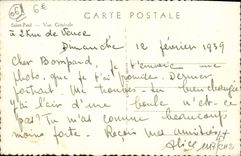 6€
CARTE POSTALE
Saint-Paul — Vue Générale
à 2 Km de Vence
Dimanche 12 février 1939
Cher Bompard, je t'envoie une
photo, que je t'ai promise. Dernier
portrait. Me trouves-tu bien changée
J'ai l'air d'une boule n'est-ce
pas? Tu m'as connue beaucoup
moins forte. Reçois mes amitiés
Alice